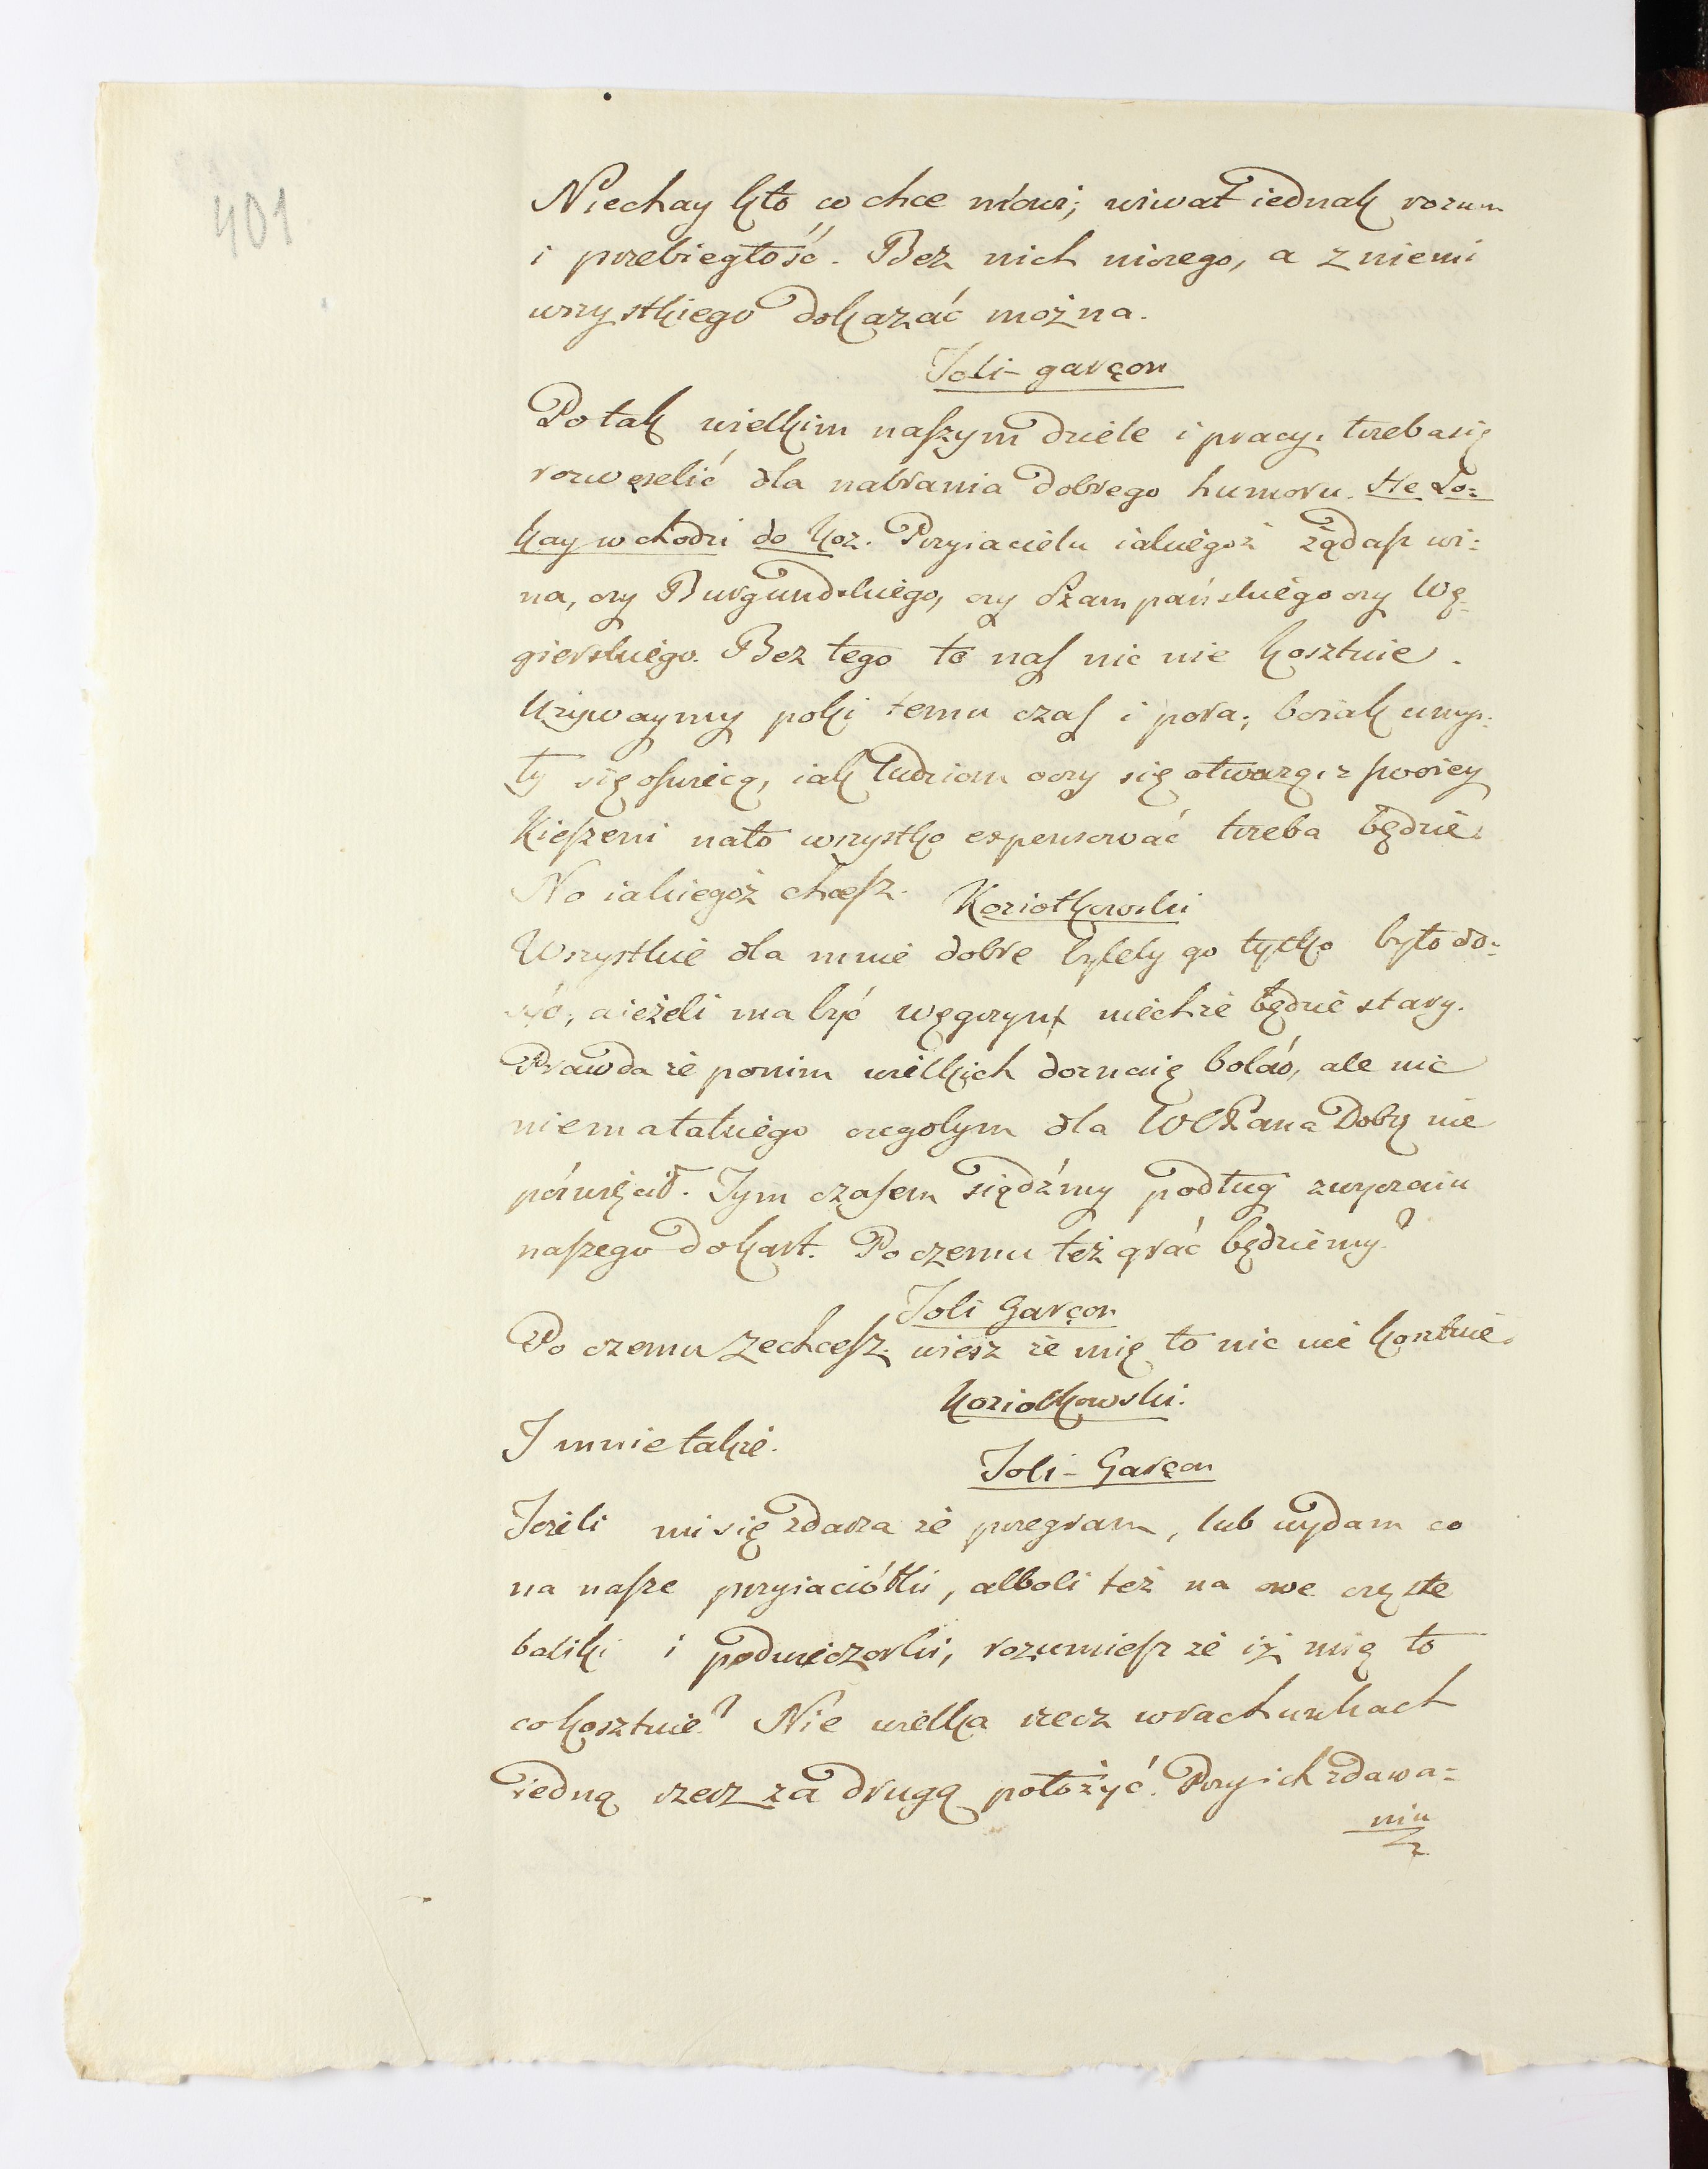 401
Niechay kto co chce mówi; wiwat iednak rozum
i przebiegłość. Bez nich niczego, a z niemi
wszystkiego dokazać można.
Joli-garçon
Po tak wielkim naszym dziele i pracy, trzeba się
rozweselić dla nabrania dobrego humoru. He Lo=
kay wchodzi do Koz. Przyiacielu iakiegoż żądasz wi=
na, czy Burgundskiego, czy Szampańskiego czy Wę=
gierskiego. Bez tego to nas nic nie kosztuie.
Używaymy poki temu czas i pora; bo iak umys=
ły się oświecą, iak ludziom oczy się otworzą, z swoiey
Kieszeni na to wszystko expensować trzeba będzie.
No iakiegoż chcesz.
Koziołkowski
Wszystkie dla mnie dobre byleby go tylko było do=
syć, a ieżeli ma być węgrzyn niechże będzie stary.
Prawda że po nim wielkich doznaię bolów, ale nic
niema takiego czegobym dla WPana Dobr nie
poświęcił. Tym czasem siądźmy podług zwyczaiu
naszego do kart. Po czemu też grać będziemy?
Joli Garçon
Po czemu zechcesz wiesz że mię to nic nie kosztuie.
Koziołkowski.
I mnie także.
Joli-Garçon
Jeżeli mi się zdarza że przegram, lub wydam co
na nasze przyiaciółki, alboli też na owe częste
baliki i podwieczorki, rozumiesz że iż mię to
co kosztuie? Nie wielka rzecz w rachunkach
iedną rzecz za drugą położyć. Przy ich zdawa=
niu